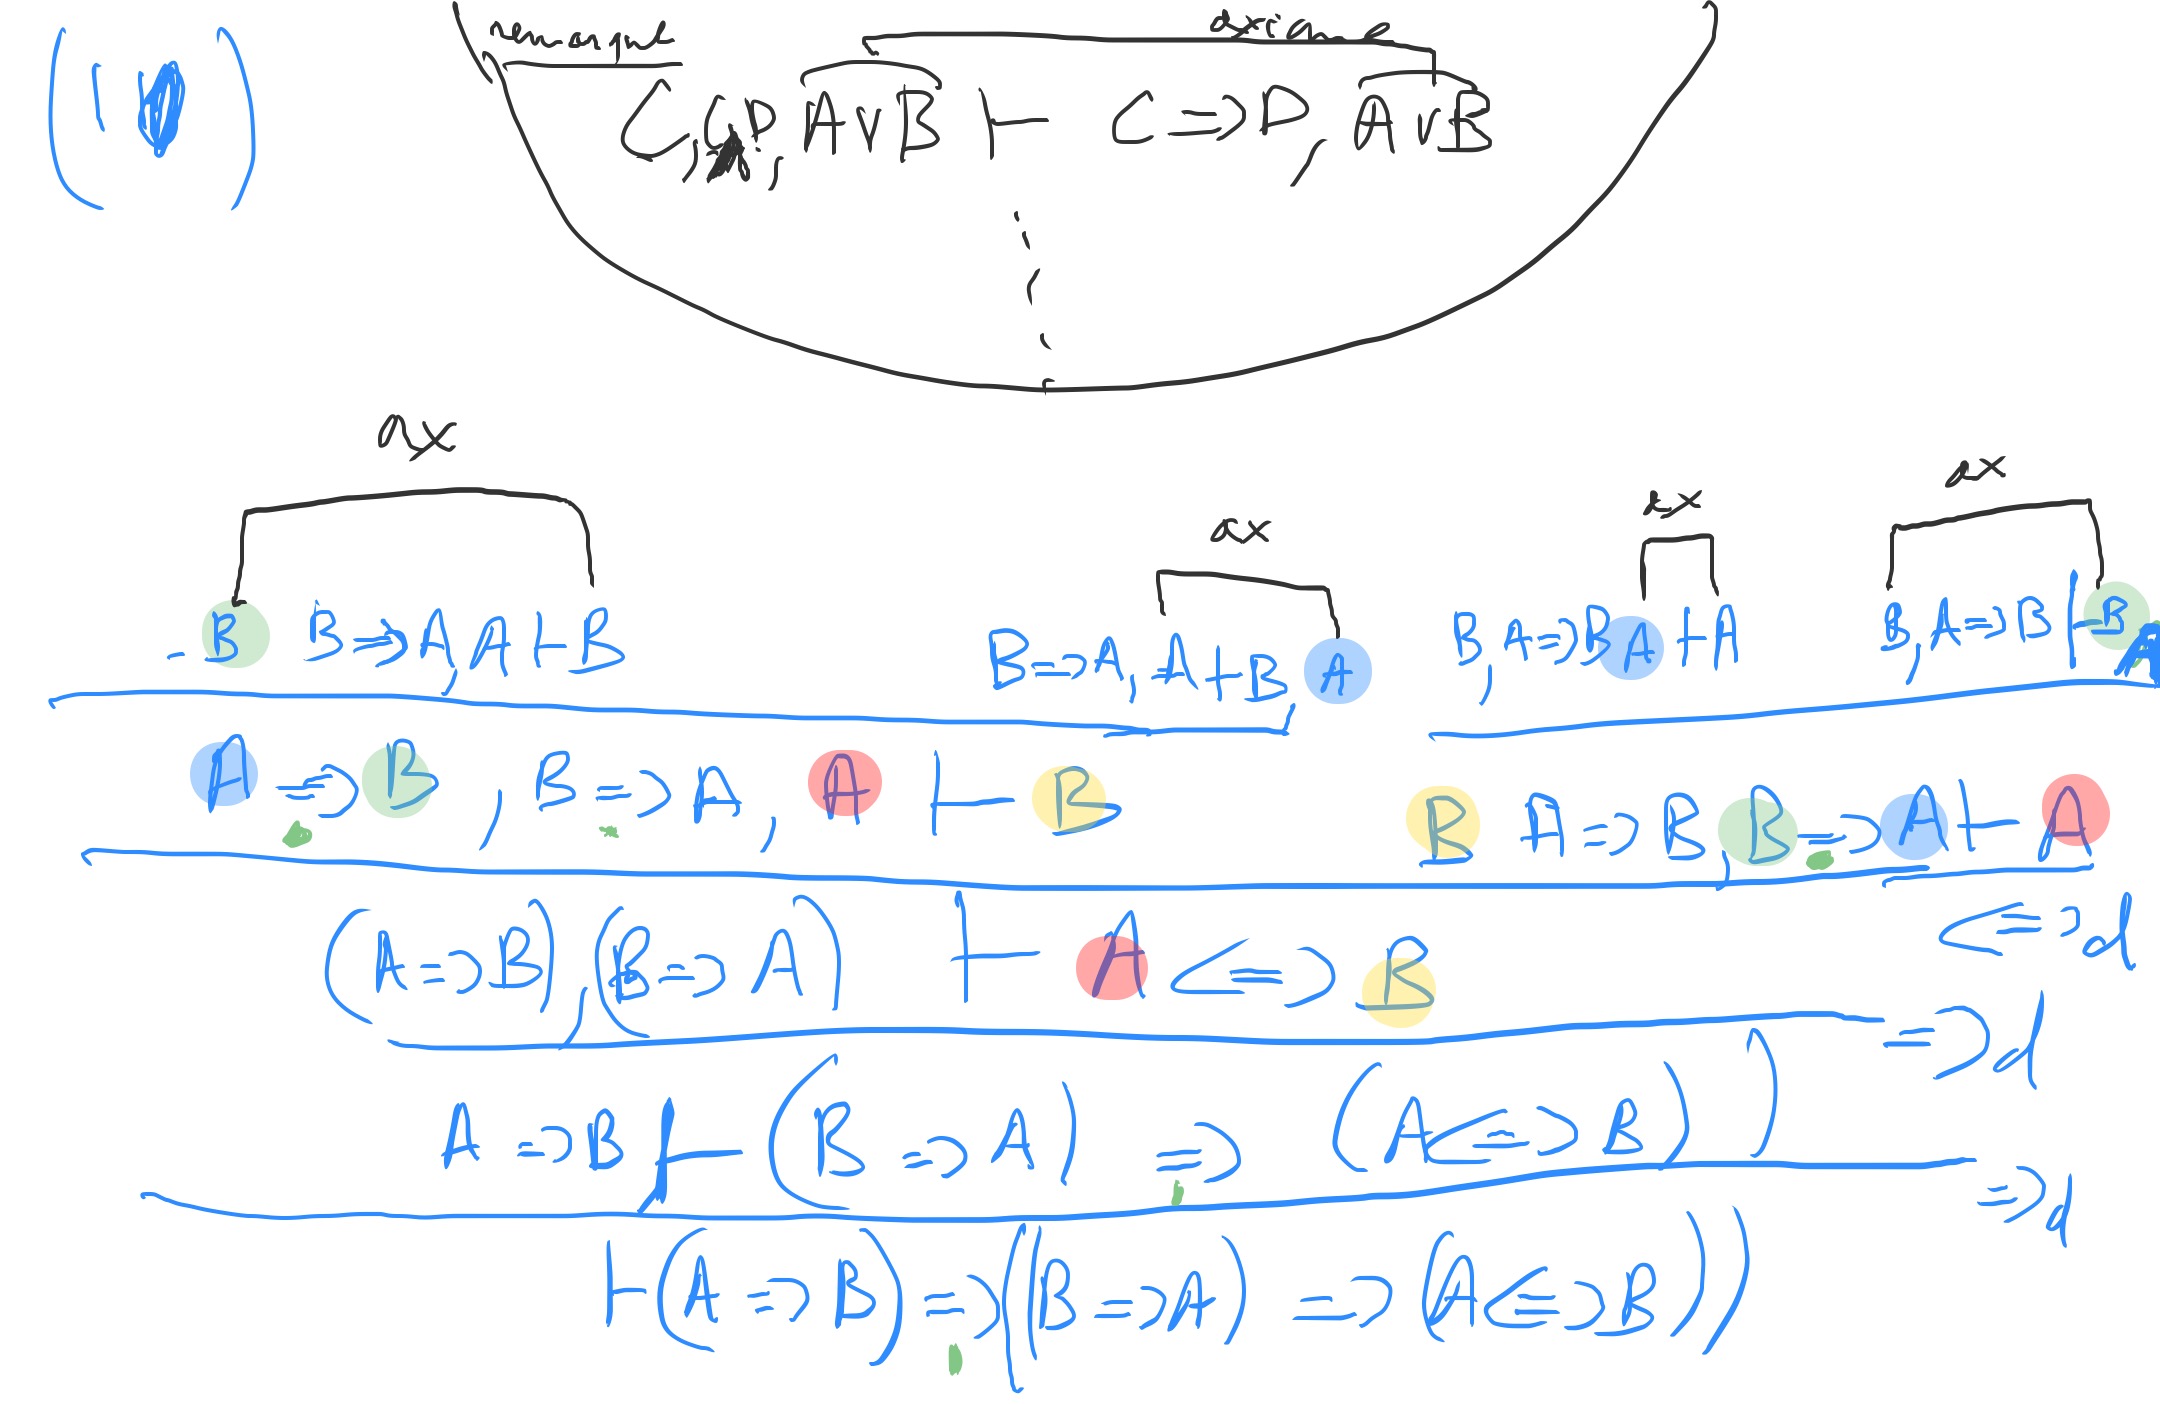 remarque axiome
(10)
C, C, D, A∨B ⊢ C => D, A∨B
ax
ax ax ax
B B => A, A ⊢ B B => A, A ⊢ B, A B, A => B A ⊢ A B, A => B ⊢ B
A => B, B => A, A ⊢ B B A => B, B => A ⊢ A
<=> d
(A => B), (B => A) ⊢ A <=> B
=> d
A => B ⊢ (B => A) => (A <=> B))
=> d
⊢ (A => B) => ((B => A) => (A <=> B))